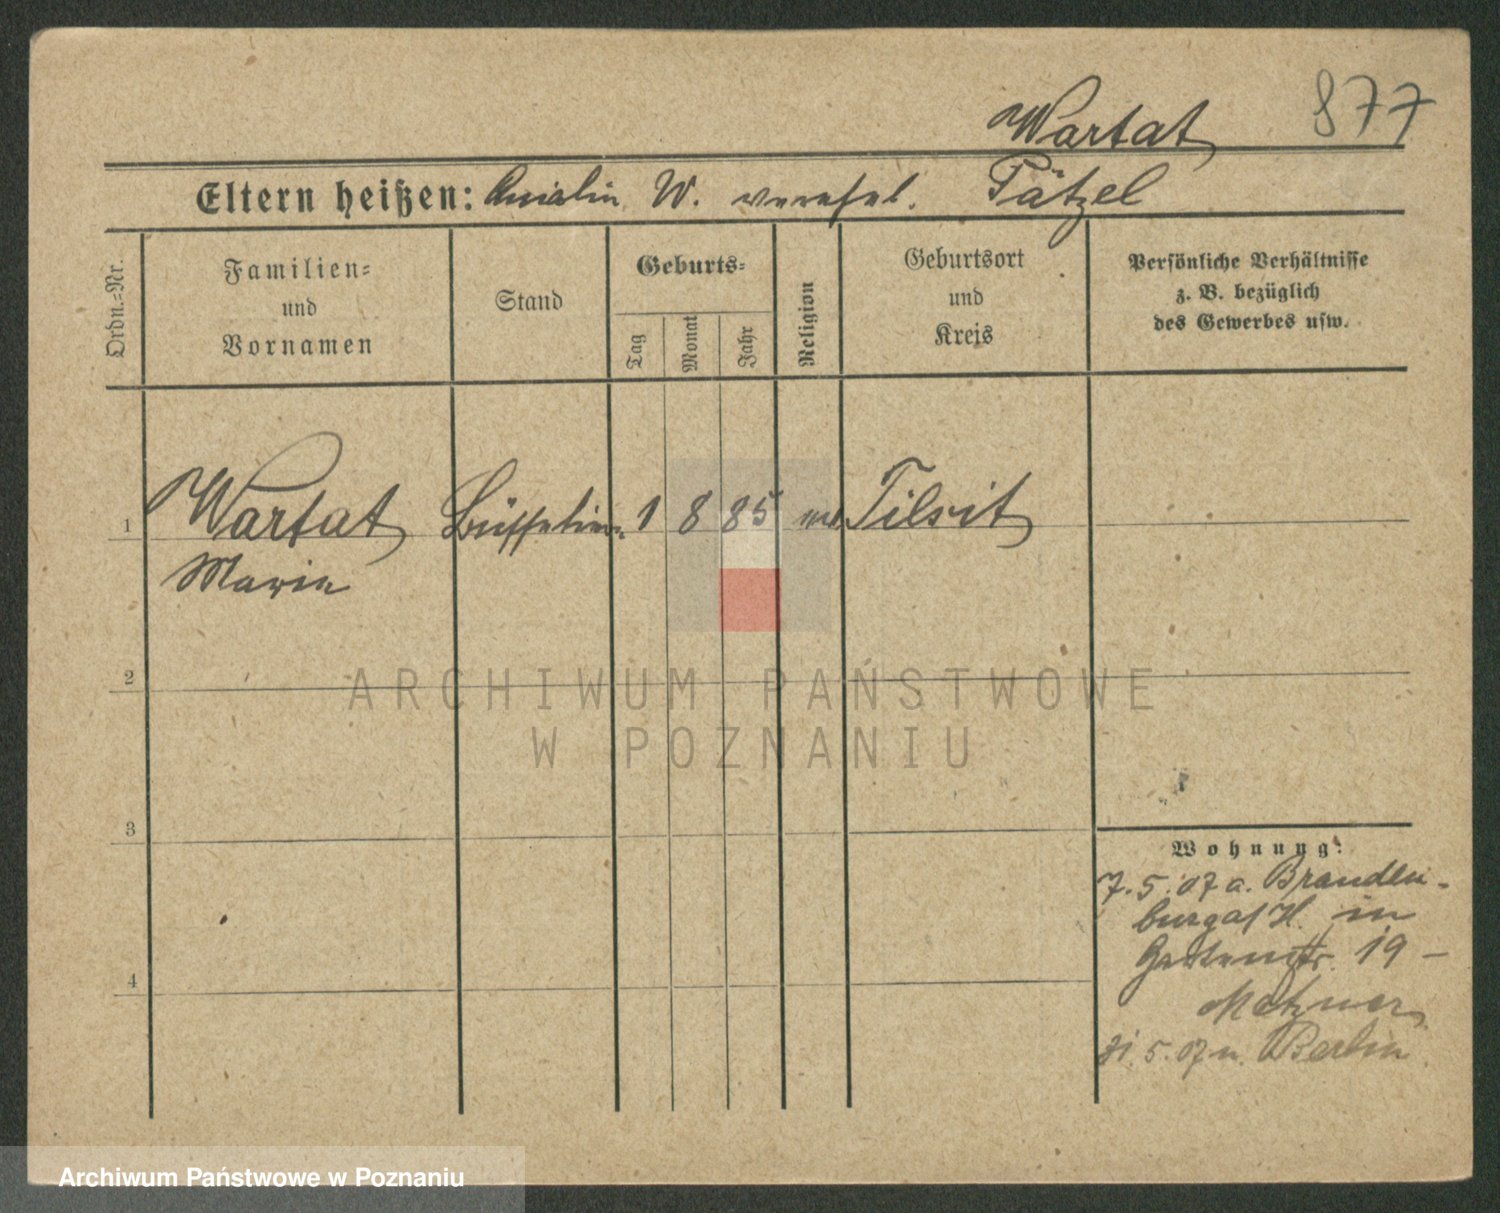 Wartat 877
Eltern heißen: Amalie W. verehel. Pätzel
Ordn.=Nr.
Familien=
und
Vornamen
Stand
Geburts=
Tag
Monat
Jahr
Religion
Geburtsort
und
Kreis
Persönliche Verhältnisse
z. B. bezüglich
des Gewerbes usw.
1 Wartat 1 8 85 Tilsit
Marie
2
3
4
Wohnung:
7.5.07 a. Branden-
burg a/H. in
Gartenstr. 19 –
Metzner
31.5.07 n. Berlin
ARCHIWUM PAŃSTWOWE
W POZNANIU
Archiwum Państwowe w Poznaniu